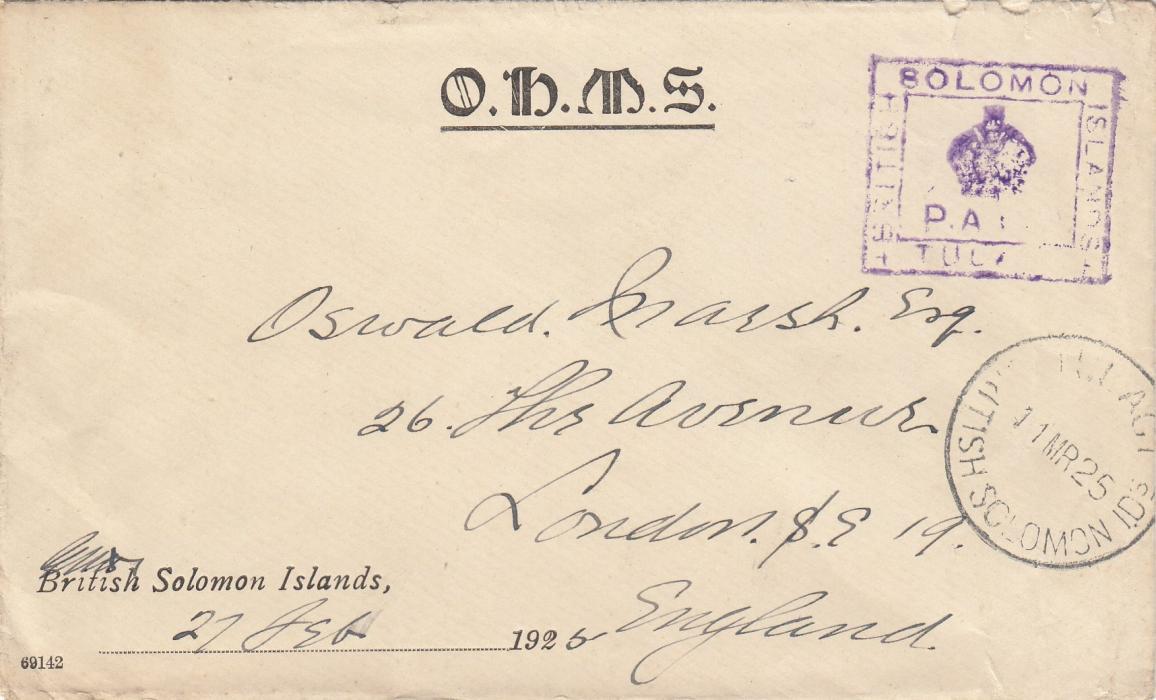 O.H.M.S.
SOLOMON
ISLANDS
BRITISH
P.A
TUL
Oswald. Marsh. Esq.
26. The Avenue
London. S.E 19.
England.
TULAGI
11 MR 25
BRITISH SOLOMON IDS
British Solomon Islands,
27 Feb 1925
69142